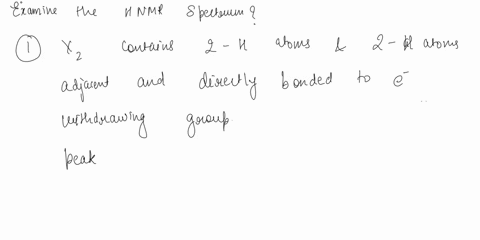 Examine the HNMR Spectrum?
① X₂ contains 2-H atoms & 2-H atoms
adjacent and directly bonded to e⁻
withdrawing group.
peak